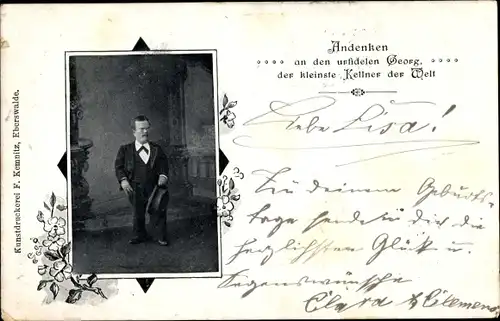 Andenken
an den urfidelen Georg,
der kleinste Kellner der Welt
Liebe Lisa!
Zu deinem Geburts-
tage sende dir die
herzlichsten Glück u.
Segenswünsche
Clara & Clemens
Kunstdruckerei F. Kemnitz, Eberswalde.